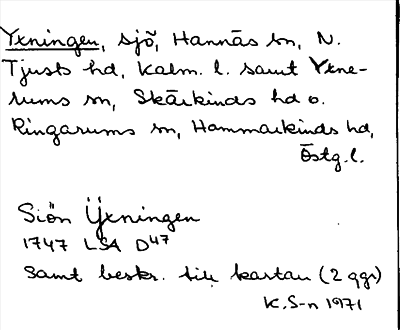 Yxningen, sjö, Hannäs sn, N.
Tjusts hd, Kalm. l. samt Yxne-
rums sn, Skärkinds hd o.
Ringarums sn, Hammarkinds hd,
Östg. l.
Siön Ÿxningen
1747 LSA D47
samt beskr. till kartan (2 ggr)
K. S-n 1971